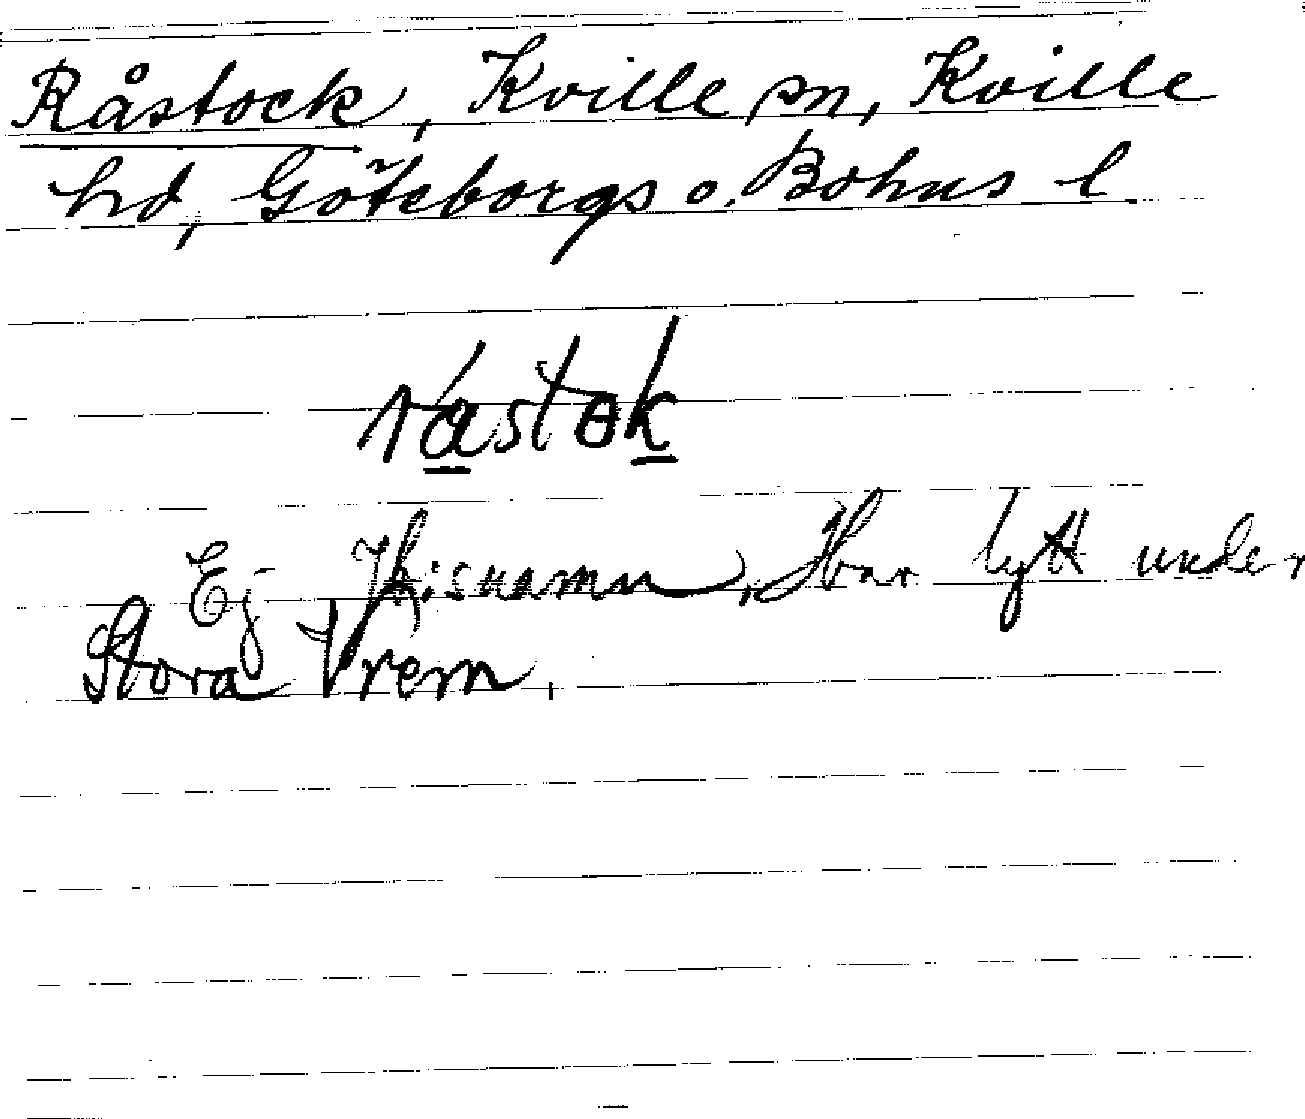 Råstock, Kville sn, Kville
hd, Göteborgs o. Bohus l.
råstok
Ej Thisnamn, Har lytt under
Stora Vrem.